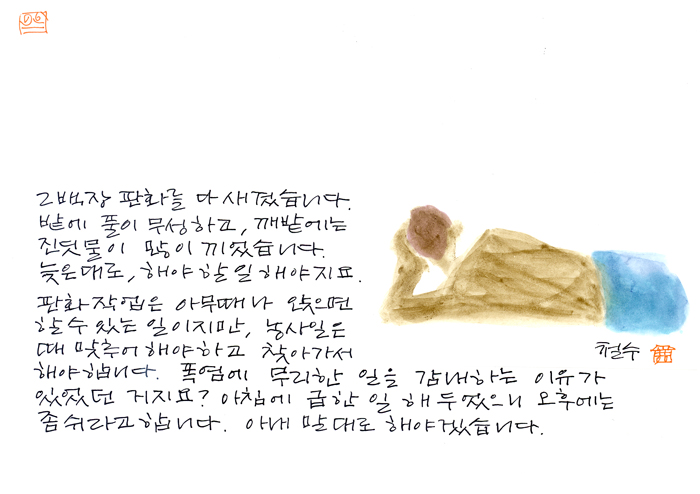 그 백장 판화를 다 새겼습니다.
밭에 풀이 무성하고, 깨밭에는
진딧물이 많이 끼었습니다.
늦은대로, 해야 할 일 해야지요.
판화작업은 아무때나 앉으면
할 수 있는 일이지만, 농사일은
때 맞추어 해야하고 찾아가서
해야합니다. 폭염에 무리한 일을 감내하는 이유가
있었던 거지요? 아침에 급한 일 해 두었으니 오후에는
좀 쉬라고 합니다. 아내 말대로 해야겠습니다.
철수